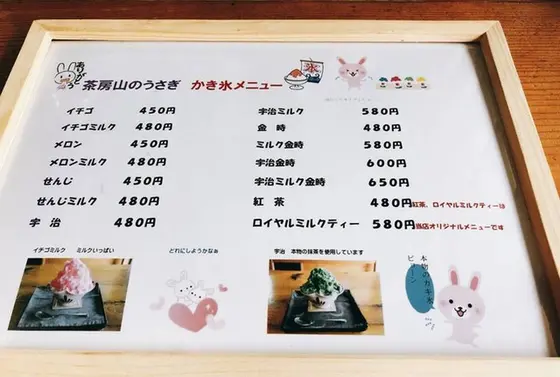 茶房山のうさぎ かき氷メニュー
氷
イチゴ 450円
イチゴミルク 480円
メロン 450円
メロンミルク 480円
せんじ 450円
せんじミルク 480円
宇治 480円
宇治ミルク 580円
金時 480円
ミルク金時 580円
宇治金時 600円
宇治ミルク金時 650円
紅茶 480円 紅茶、ロイヤルミルクティーは
ロイヤルミルクティー 580円 当店オリジナルメニューです
イチゴミルク ミルクいっぱい
どれにしようかなぁ
宇治 本物の抹茶を使用しています
本物のカキ氷